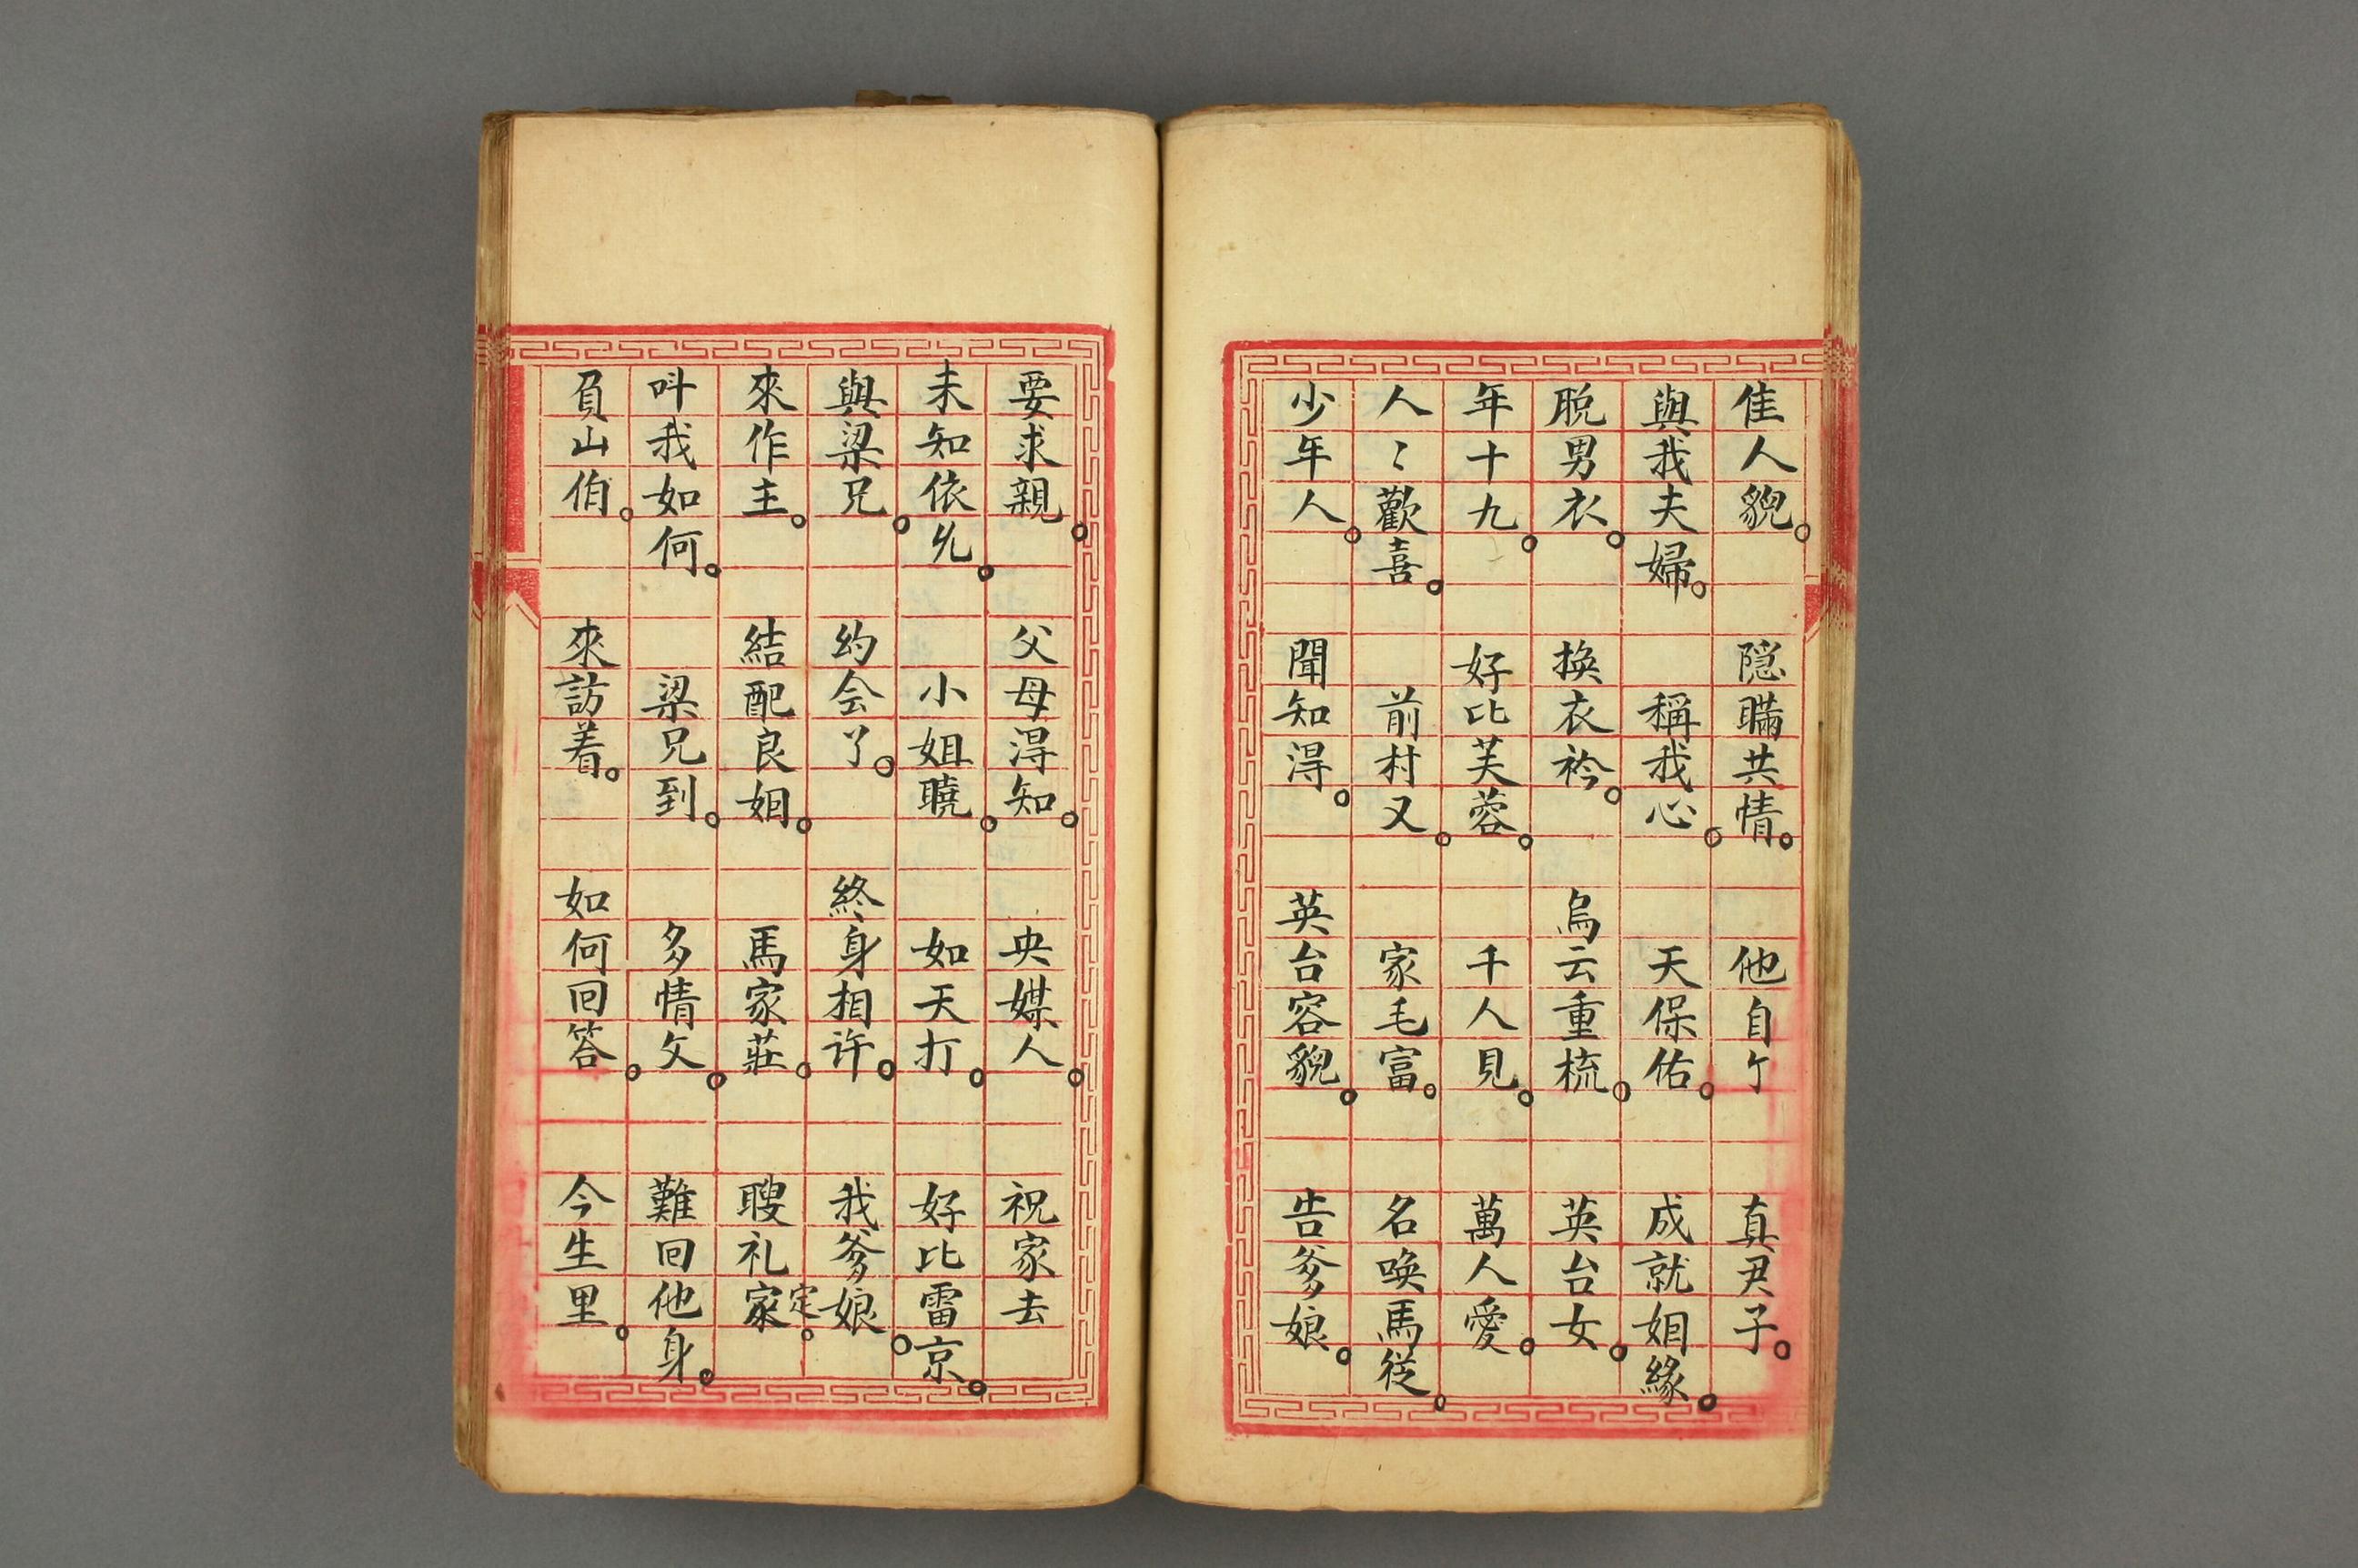 佳人貌。隱瞞共情。他自个真尹子。
與我夫婦。稱我心。天保佑。成就姻緣。
脫男衣。換衣衿。烏云重梳。英台女。
年十九。好比芙蓉。千人見。萬人愛。
人〻歡喜。前村又。家毛富。名喚馬從。
少年人。聞知淂。英台容貌。告爹娘。
要求親。父母淂知。央媒人。祝家去
未知依允。小姐曉。如天打。好比雷京。
與梁兄。約会了。終身相许。我爹娘。
來作主。結配良姻。馬家莊。聘礼家定。
呌我如何。梁兄到。多情文。難回他身。
負山伯。來訪着。如何回答。今生里。